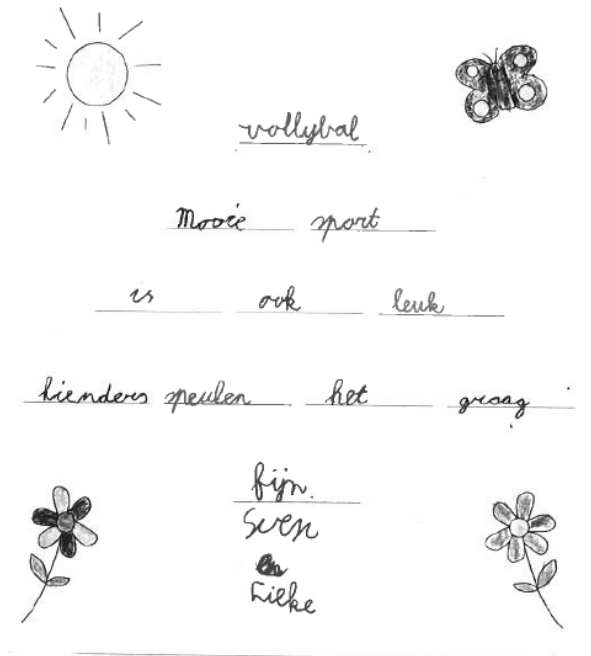 vollybal
Mooie sport
is ook leuk
kienders speulen het graag
fijn.
Sven
Lieke